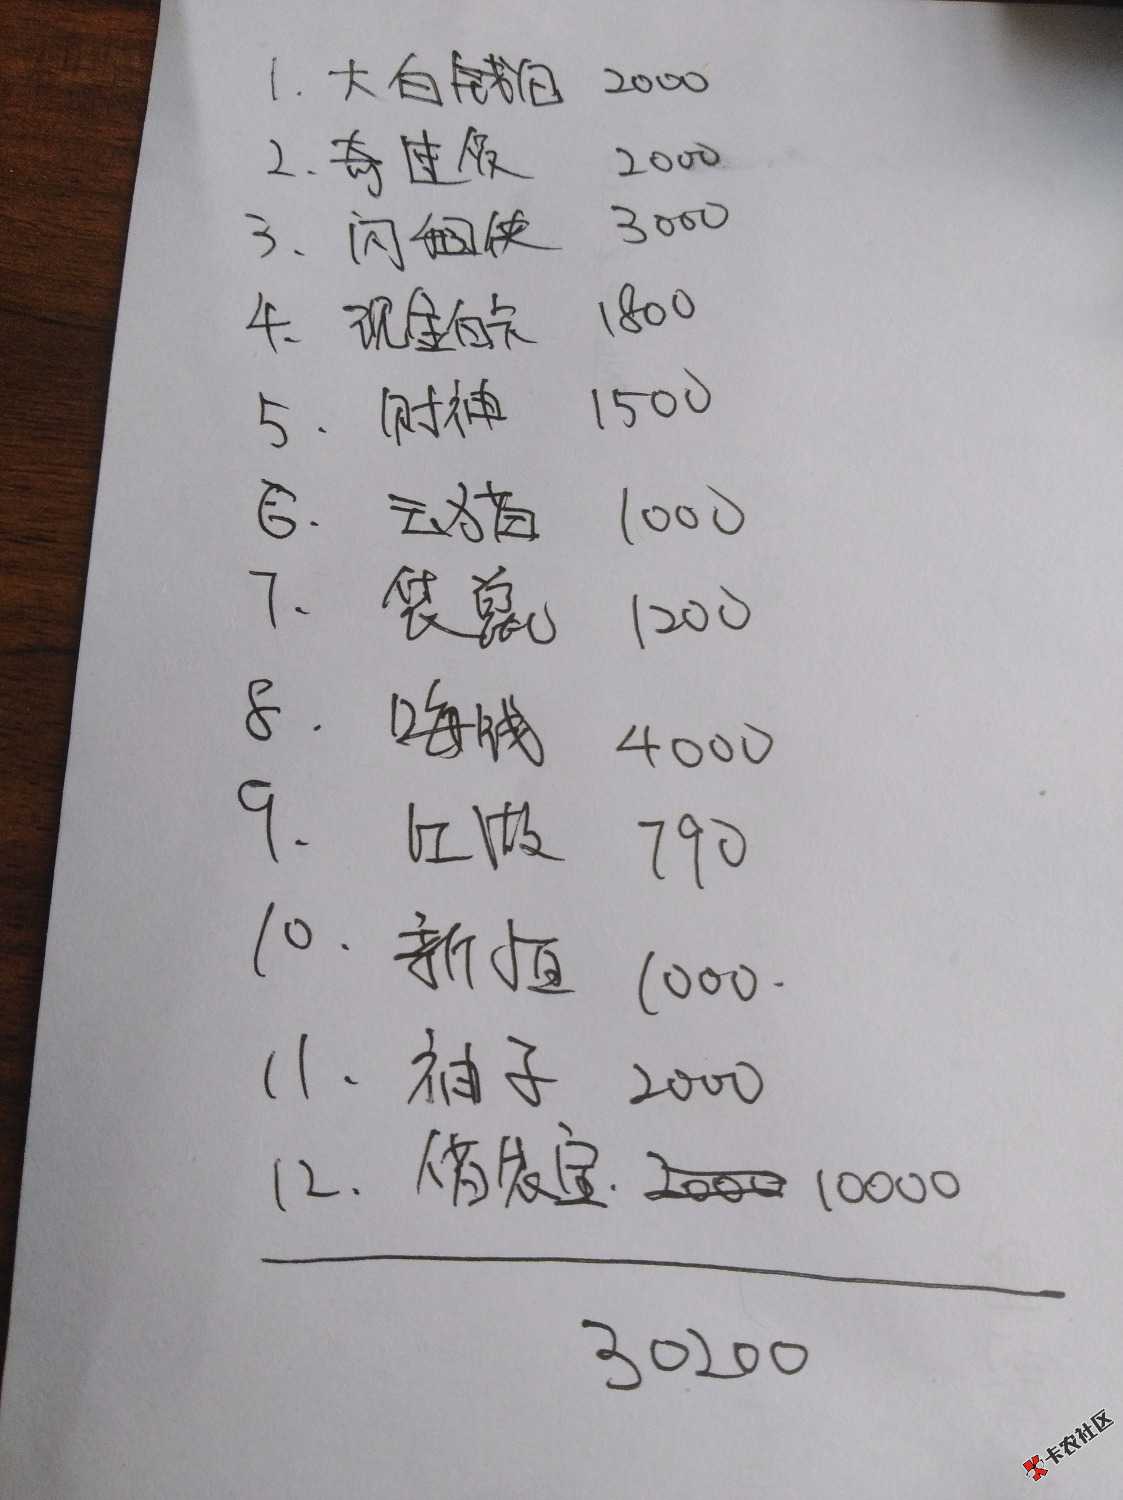 1. 大白钱包 2000
2. 奇速贷 2000
3. 闪电侠 3000
4. 现金白卡 1800
5. 财神 1500
6. 云猪 1000
7. 袋鼠 1200
8. 嗨钱 4000
9. 江湖 790
10. 新值 1000.
11. 柚子 2000
12. 借宝. 2000 10000
30200
卡农社区